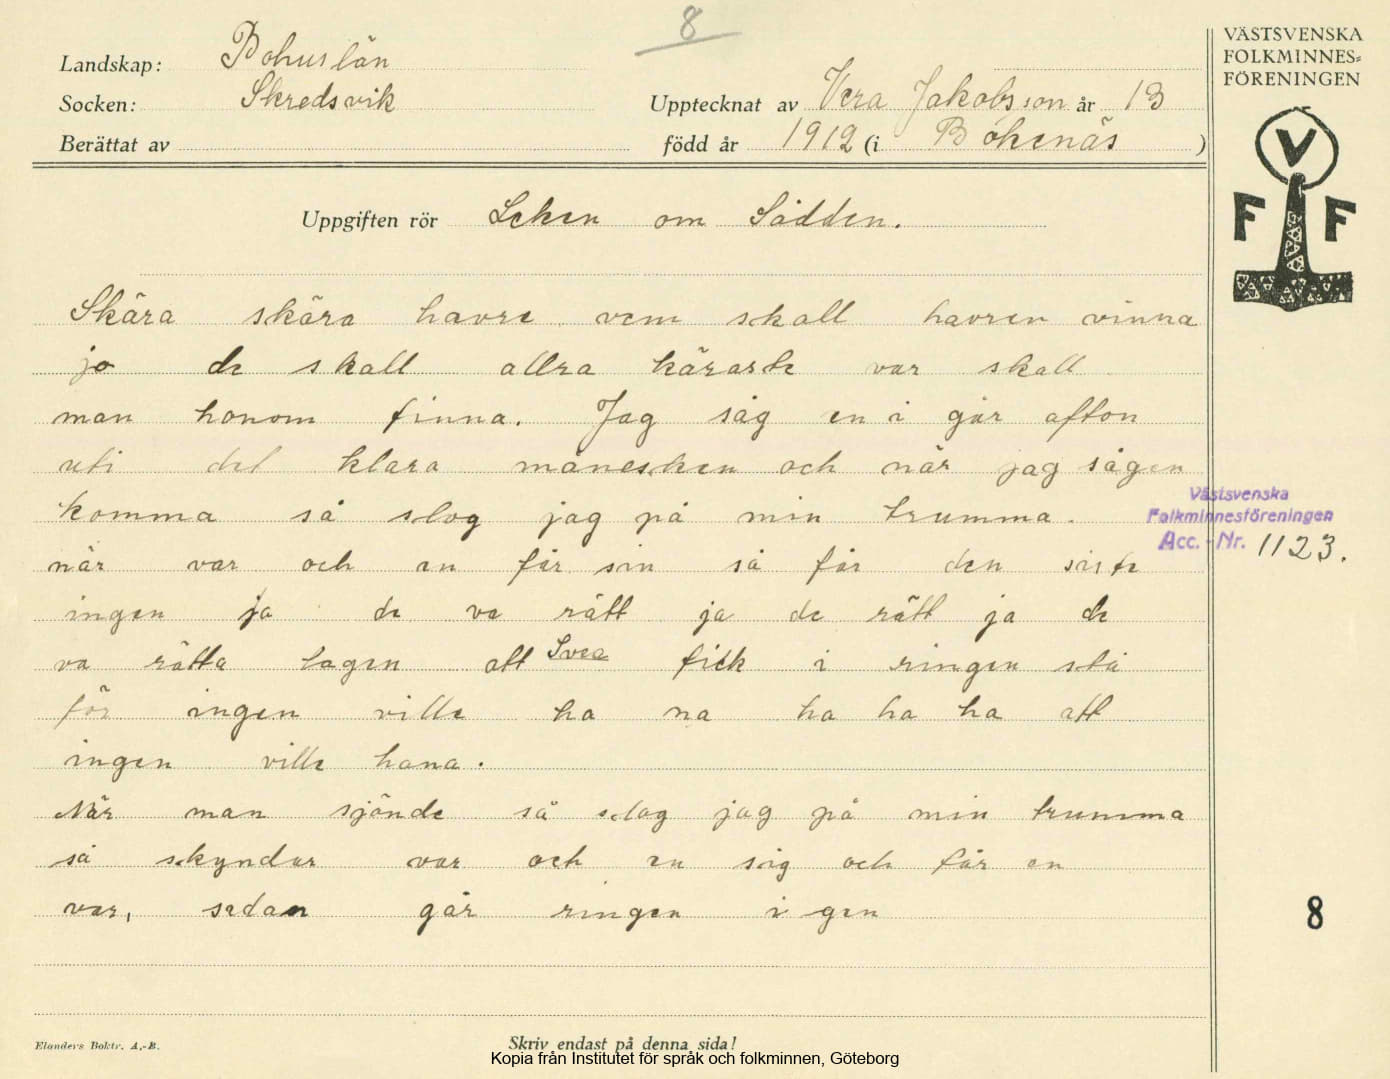 8
Landskap: Bohuslän
Socken: Skredsvik
Upptecknat av Vera Jakobsson år 13
Berättat av
född år 1912 (i Bokenäs )
VÄSTSVENSKA
FOLKMINNES=
FÖRENINGEN
V
F F
Uppgiften rör Leken om Sådden.
Skära skära havre vem skall havren vinna
jo de skall allra käraste var skall
man honom finna. Jag såg en i går afton
uti det klara månesken och när jag sågen
komma så slog jag på min trumma.
när var och en får sin så får den siste
ingen ja de va rätt ja de rätt ja de
va rätta lagen att Svea fick i ringen stå
för ingen ville ha na ha ha ha att
ingen ville hana.
När man sjönde så slog jag på min trumma
så skyndar var och en sig och får en
var, sedan går ringen i gen
Västsvenska
Folkminnesföreningen
Acc.-Nr. 1123.
8
Elanders Boktr. A.-B.
Skriv endast på denna sida!
Kopia från Institutet för språk och folkminnen, Göteborg